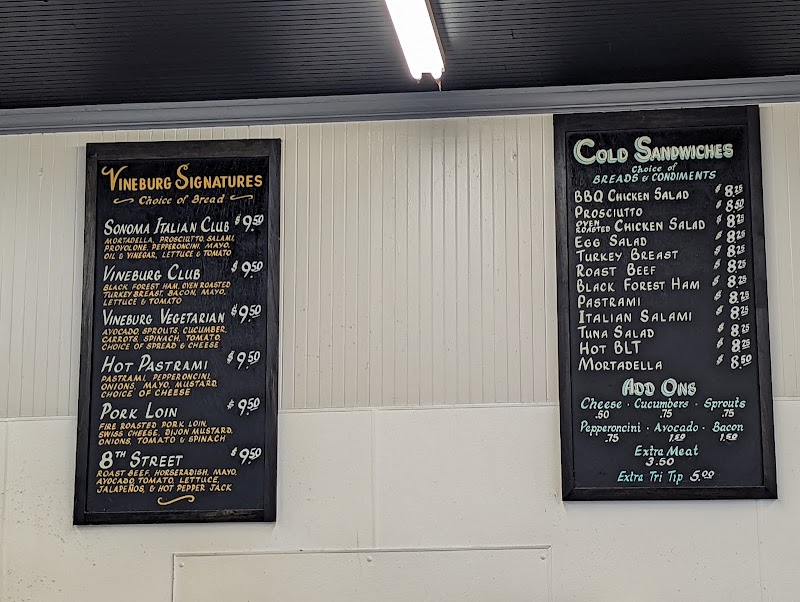 Vineburg Signatures
Choice of Bread
Sonoma Italian Club $9.50
Mortadella, Prosciutto, Salami,
Provolone, Pepperoncini, Mayo,
Oil & Vinegar, Lettuce & Tomato
Vineburg Club $9.50
Black Forest Ham, Oven Roasted
Turkey Breast, Bacon, Mayo,
Lettuce & Tomato
Vineburg Vegetarian $9.50
Avocado, Sprouts, Cucumber,
Carrots, Spinach, Tomato,
Choice of Spread & Cheese
Hot Pastrami $9.50
Pastrami, Pepperoncini,
Onions, Mayo, Mustard,
Choice of Cheese
Pork Loin $9.50
Fire Roasted Pork Loin,
Swiss Cheese, Dijon Mustard,
Onions, Tomato & Spinach
8th Street $9.50
Roast Beef, Horseradish, Mayo,
Avocado, Tomato, Lettuce,
Jalapeños, & Hot Pepper Jack
Cold Sandwiches
Choice of
Breads & Condiments
BBQ Chicken Salad $8.25
Prosciutto $8.50
Oven Roasted Chicken Salad $8.25
Egg Salad $8.25
Turkey Breast $8.25
Roast Beef $8.25
Black Forest Ham $8.25
Pastrami $8.25
Italian Salami $8.25
Tuna Salad $8.25
Hot BLT $8.25
Mortadella $8.50
Add Ons
Cheese · Cucumbers · Sprouts
.50 .75 .75
Pepperoncini · Avocado · Bacon
.75 1.50 1.50
Extra Meat
3.50
Extra Tri Tip 5.00